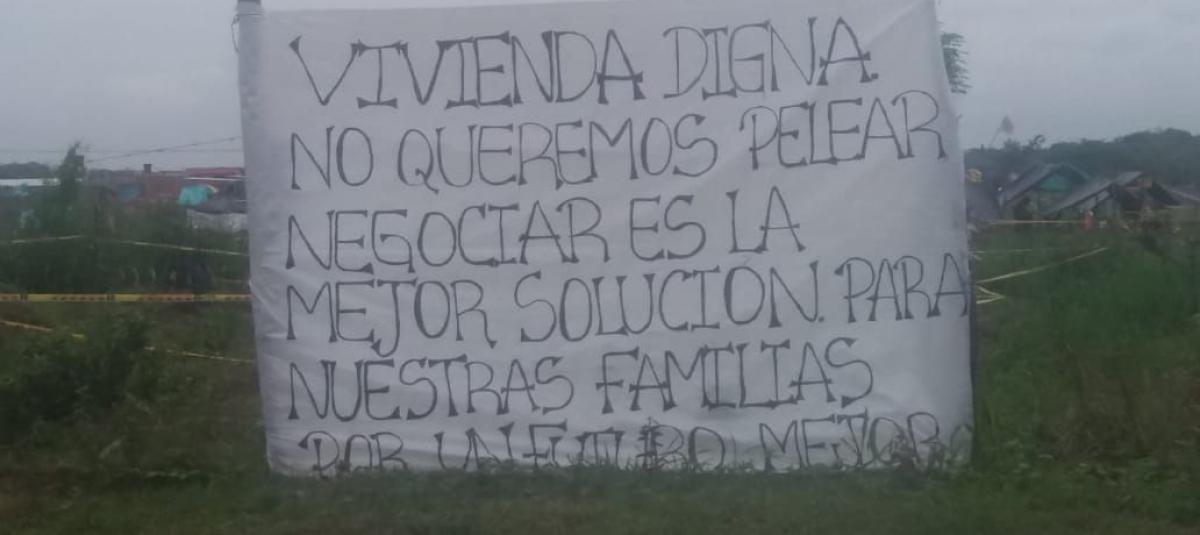 VIVIENDA DIGNA.
NO QUEREMOS PELEAR
NEGOCIAR ES LA
MEJOR SOLUCION. PARA
NUESTRAS FAMILIAS
POR UN FUTURO MEJOR